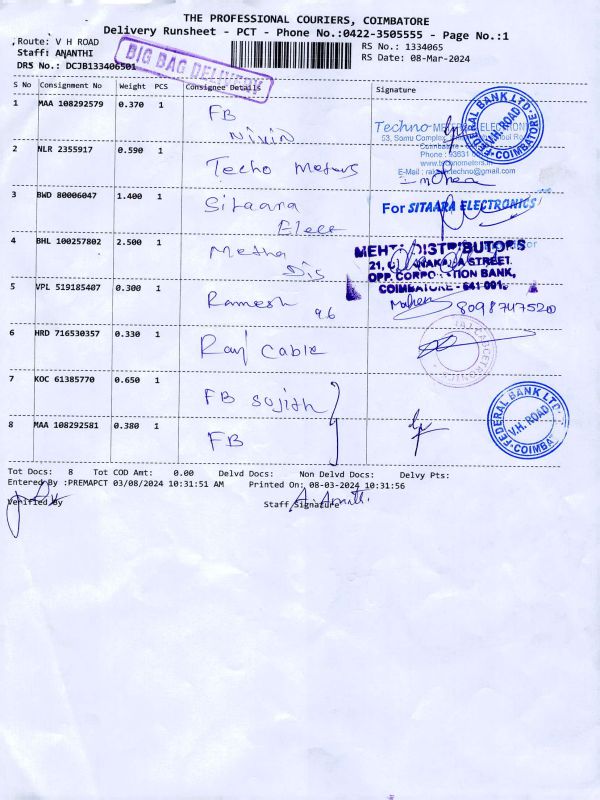 THE PROFESSIONAL COURIERS, COIMBATORE
Delivery Runsheet - PCT - Phone No.:0422-3505555 - Page No.:1
Route: V H ROAD
RS No.: 1334065
Staff: ANANTHI
RS Date: 08-Mar-2024
DRS No.: DCJB133406501
BIG BAG DELIVERY
S No Consignment No Weight PCS Consignee Details Signature
1 MAA 108292579 0.370 1 FB
Nixin
FEDERAL BANK LTD. V.H. ROAD COIMBATORE
2 NLR 2355917 0.590 1 Techo Meters
Techno
Coimbatore
www.technometers.in
3 BWD 80006047 1.400 1 Sitaara
Elece
For SITAARA ELECTRONICS
4 BHL 100257802 2.500 1 Metha
Dis
MEHTA DISTRIBUTORS
STREET.
OPP. CORPORATION BANK,
COIMBATORE - 641 001.
5 VPL 519185407 0.300 1 Ramesh
96
Mahen
6 HRD 716530357 0.330 1 Raj Cable
7 KOC 61385770 0.650 1 FB Sujith
8 MAA 108292581 0.380 1 FB
FEDERAL BANK LTD. V.H. ROAD COIMBA
Tot Docs: 8 Tot COD Amt: 0.00 Delvd Docs: Non Delvd Docs: Delvy Pts:
Entered By :PREMAPCT 03/08/2024 10:31:51 AM Printed On: 08-03-2024 10:31:56
Verified By
Staff Signature